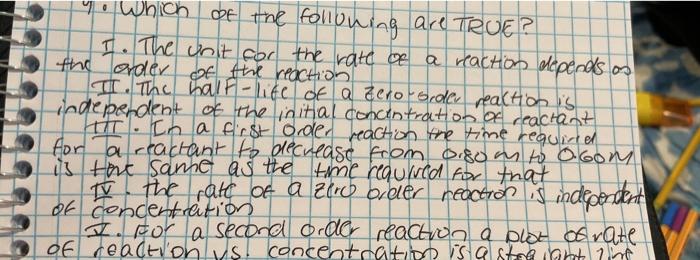 9. Which of the following are TRUE?
I. The unit for the rate of a reaction depends on
the order of the reaction
II. The half-life of a zero-order reaction is
independent of the initial concentration of reactant
III. In a first order reaction the time required
for a reactant to decrease from 0.80 M to 0.60 M
is the same as the time required for that
IV. The rate of a zero order reaction is independent
of concentration
V. For a second order reaction a plot of rate
of reaction vs. concentration is a straight line